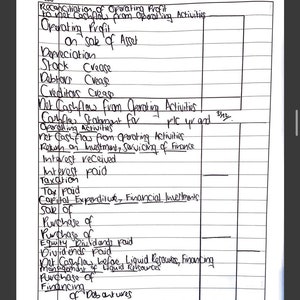 Reconciliation of Operating Profit
to net Cashflow from Operating Activities
Operating Profit
on sale of Asset
Depreciation
Stock Crease
Debtors Crease
Creditors Crease
Net Cashflow from Operating Activities
Cashflow Statement for plc yr end 31/12
Operating Activities
Net Cashflow from Operating Activities
Return on Investment, Servicing of Finance
Interest received
Interest paid
Taxation
Tax paid
Capital Expenditure, Financial Investments
Sale of
Purchase of
Purchase of
Equity Dividends paid
Dividends paid
Net Cashflow before Liquid Resources, Financing
Management of Liquid Resources
Purchase of
Financing
of Debentures